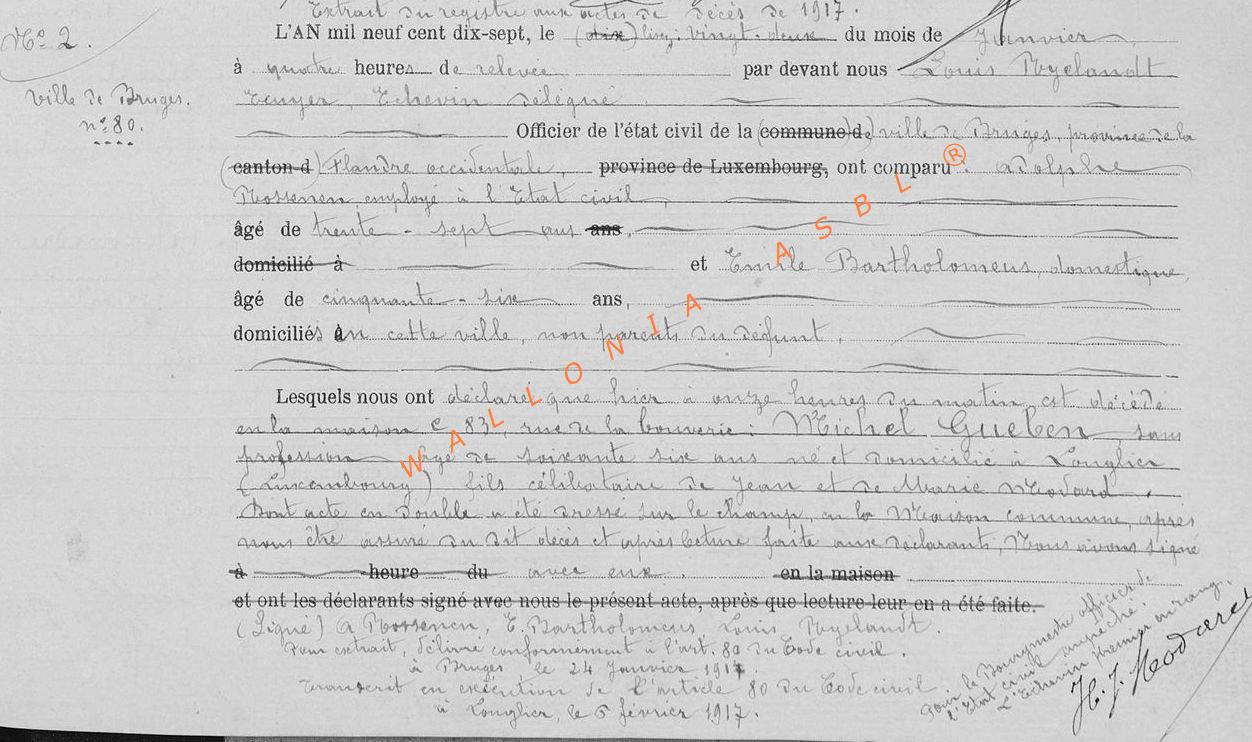 Extrait du registre aux actes de décès de 1917.
N° 2.
L'AN mil neuf cent dix-sept, le (dix) lisez: vingt-deux du mois de Janvier
à quatre heures de relevée par devant nous Louis Ryelandt
Ecuyer, Echevin délégué
ville de Bruges.
n° 80.
Officier de l'état civil de la (commune) d(e) ville de Bruges, province de la
(canton d) Flandre occidentale, province de Luxembourg, ont comparu: adolphe
Rossenen, employé à l'Etat civil,
âgé de trente-sept ans ans,
domicilié à et Emile Bartholomeus, domestique,
âgé de cinquante-six ans,
domiciliés en cette ville, non parents du défunt.
Lesquels nous ont déclaré que hier à onze heures du matin, est décédé
en la maison C 83, rue de la bouverie: Michel Gueben, sans
profession âgé de soixante six ans né et domicilié à Longlier
(Luxembourg) fils célibataire de Jean et de Marie Modard.
Dont acte en double a été dressé sur le champ, en la Maison commune, après
nous être assuré du dit décès et après lecture faite aux déclarants, Nous avons signé
à heure du avec eux. en la maison
et ont les déclarants signé avec nous le présent acte, après que lecture leur en a été faite.
(Signé) A Rossenen, E. Bartholomeus, Louis Ryelandt.
Pour extrait, délivré conformément à l'art. 80 du Code civil.
à Bruges le 24 Janvier 1917.
Transcrit en exécution de l'article 80 du Code civil
à Longlier, le 6 février 1917.
Pour le Bourgmestre officier de
l'Etat civil empêché.
L'Echevin premier en rang.
H. J. Modard
WALLONIA ASBL ®